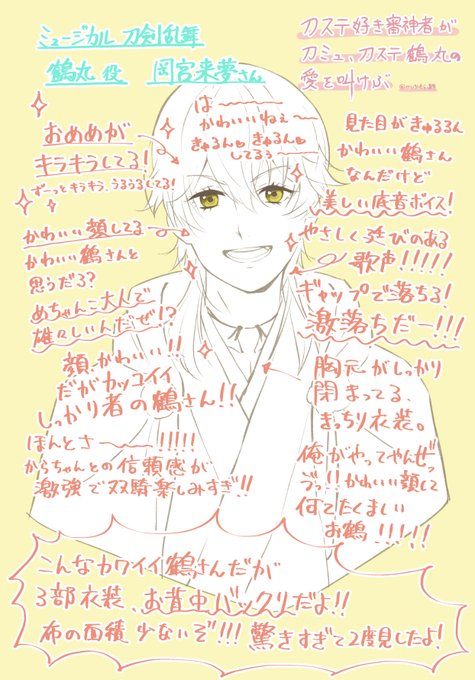 ミュージカル刀剣乱舞
鶴丸役 岡宮来夢さん
刀ステ好き審神者が
刀ミュ、刀ステ鶴丸の
愛を叫けぶ
は〜〜〜
かわいいねぇ〜
きゅるん。きゅるん。
してるぅ〜
おめめが
キラキラしてる!
ずーっとキラキラ、うるうるしてる!
かわいい顔してる
かわいい鶴さんと
思うだろ?
めちゃんこ大人で
雄々しいんだぜ!?
顔、かわいい!!
だがカッコイイ
しっかり者の鶴さん!!
ほんとさ〜〜!!!!!
からちゃんとの信頼感が
激強で双騎楽しみすぎ!!
見た目がきゅるるん
かわいい鶴さん
なんだけど
美しい底音ボイス!
やさしく延びのある
歌声!!!!!
ギャップで落ちる!
激落ちだー!!!
胸元がしっかり
閉まってる、
きっちり衣装。
俺がやってやんぜッ
ううっ!!かわいい顔して
何てたくましい
お鶴!!!!!
こんなカワイイ鶴さんだが
3部衣装、お背中バックリだよ!!
布の面積少ないぞ!!!驚きすぎて2度見したよ!